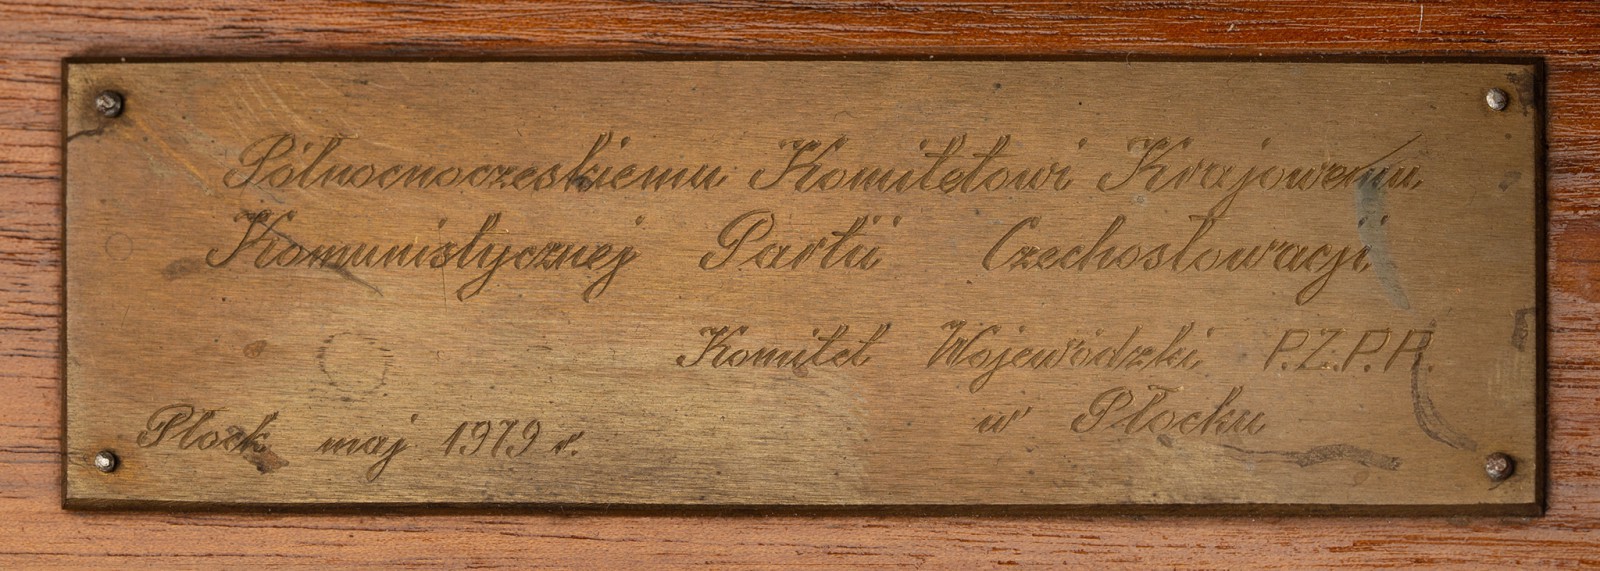 Północnoczeskiemu Komitetowi Krajowemu
Komunistycznej Partii Czechosłowacji
Komitet Wojewódzki P.Z.P.R.
w Płocku
Płock maj 1979 r.